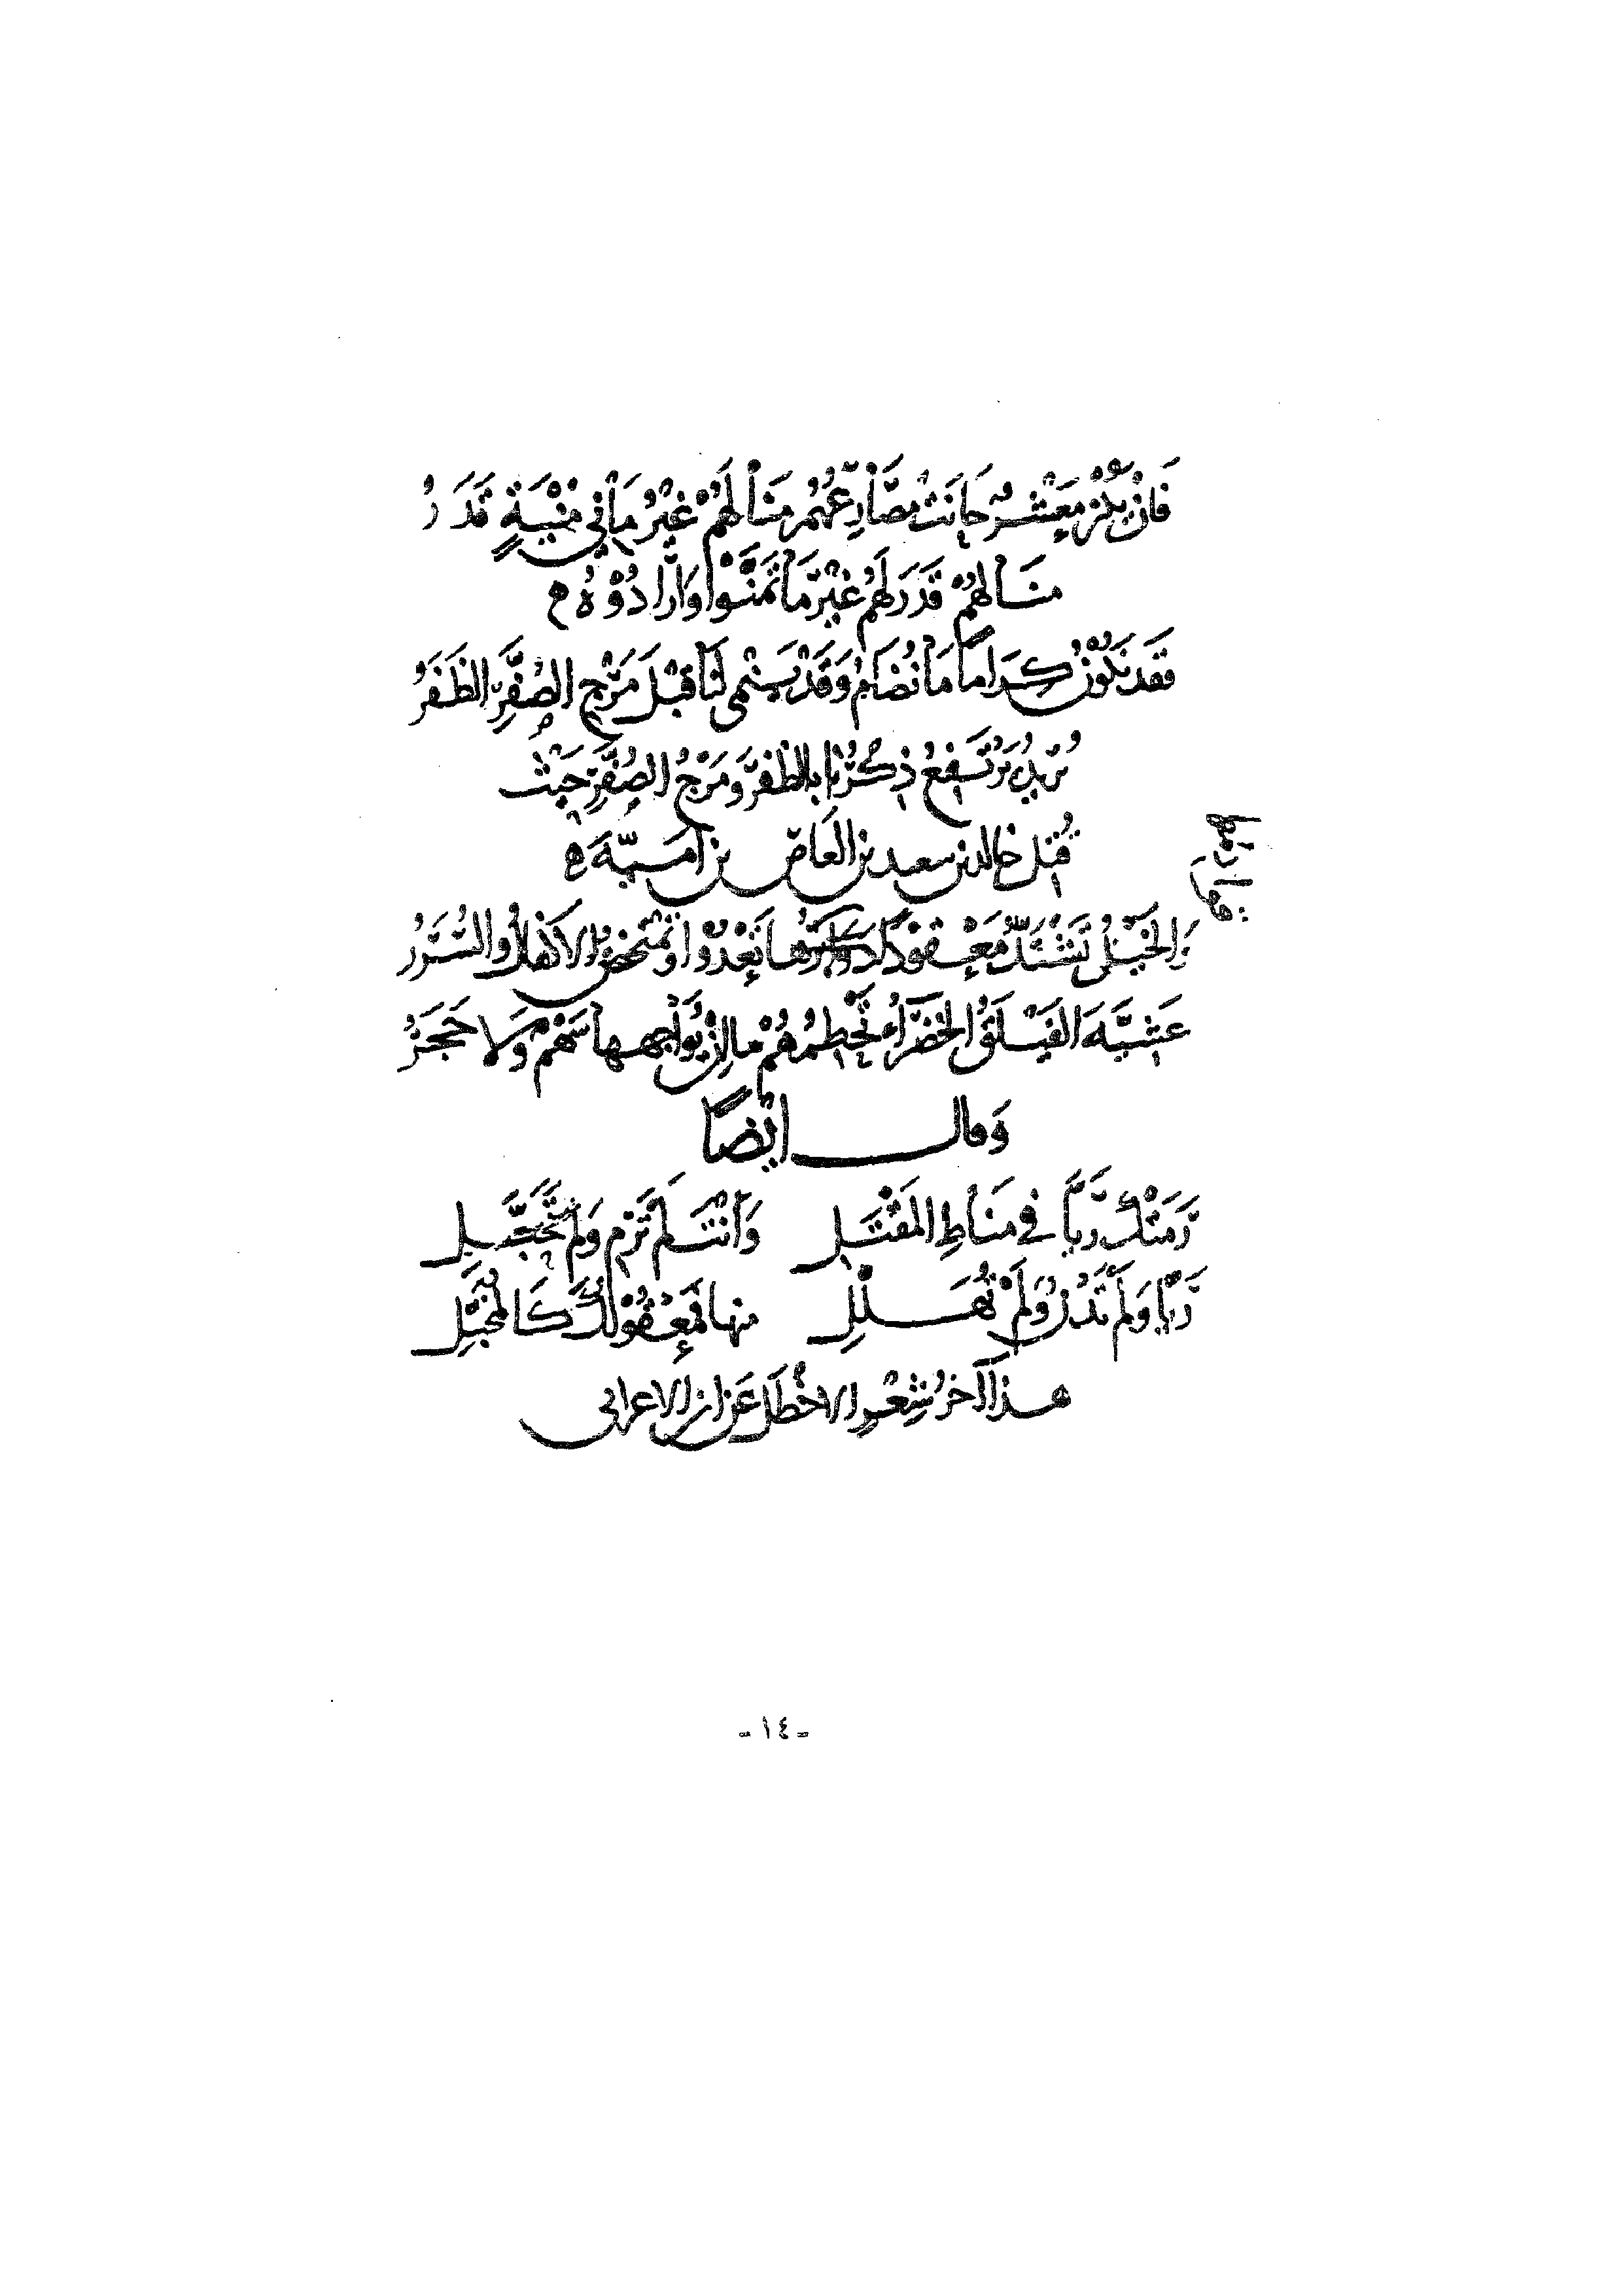 فَإِنْ يَكُنْ مَعْشَرٌ حَانَتْ مَصَارِعُهُمْ مَنَا لَهُمْ غَيْرُ مَا فِي مُنْيَةٍ قَدَرُ
مَنَا لَهُمْ قَدَرَ لَهُمْ غَيْرَ مَا تَمَنَّوْا وَأَرَادُوْهُ
فَقَد نَكُوْنُ كِرَاماً مَا نُضَامُ وَقَدْ يَنْمِى لَنَا قَبْلَ مَرْجِ الصُفَّرِ الظَفَرُ
يُرِيدُ يَرْتَفِعُ ذِكْرُنَا بِالظَفَرِ وَمَرْجُ الصُفَّرِ حَيْثُ
قُتِلَ خالد بن سعيد بن العَاصِ بن أُمَيَّةَ
وَالخَيْلُ تَشْتَدُّ مَعْقُوداً قَوَادِمُهَا تَعْدُوْا وَتَمْتَحِضُ الأَذْفَالُ وَالسُّرَرُ
عَشِيَّةَ الفَيْلَقُ الخَضْرَاءُ تَحْطِمُهُمْ مَا إِنْ يُوَاجِهُهَا سَهْمٌ وَلَا حَجَرُ
وَقال أَيْضاً
رَمَتْكَ رَيَّا فِي مَنَاطِ المَقْتَلِ وَأَنْتَ لَمْ تَرْمِ وَلَمْ
رَيَّا وَلَمْ تَدْنُ وَلَمْ تُهَلِّلِ مِنها فَمَعْقُولُكَ كَالمُخَبَّلِ
هذا آخِرُ شِعْرِ الأَخْطَلِ عَن ابن الأعرابي
- ١٤ -